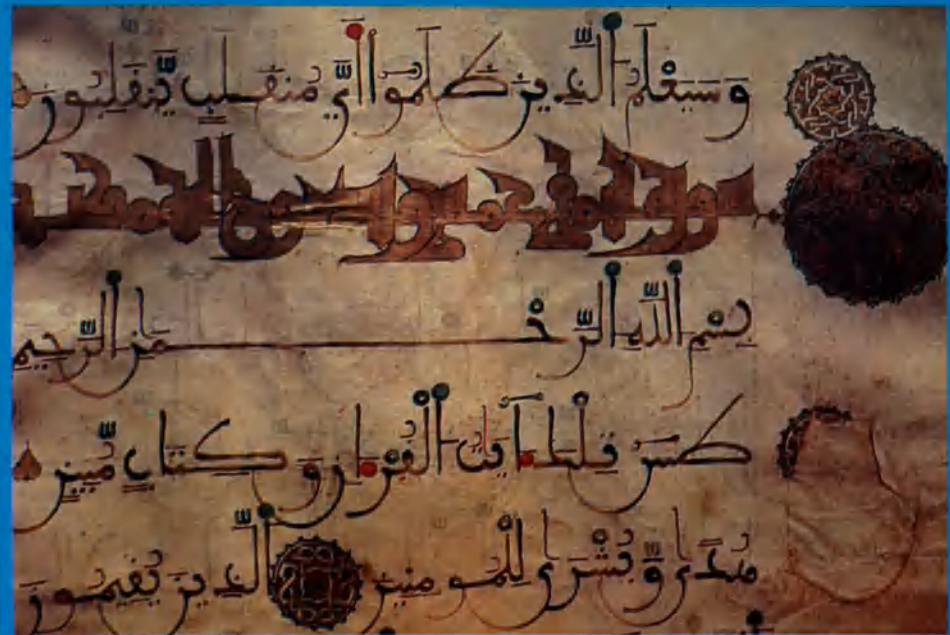 وَسَيَعْلَمُ الَّذِينَ ظَلَمُوا أَيَّ مُنقَلَبٍ يَّنقَلِبُونَ
سورة
بِسْمِ اللَّهِ الرَّحْمَٰنِ الرَّحِيمِ
طسٓ تِلْكَ ءَايَٰتُ الْقُرْءَانِ وَكِتَابٍ مُّبِينٍ
هُدًى وَّبُشْرَىٰ لِلْمُومِنِينَ الَّذِينَ يُقِيمُونَ